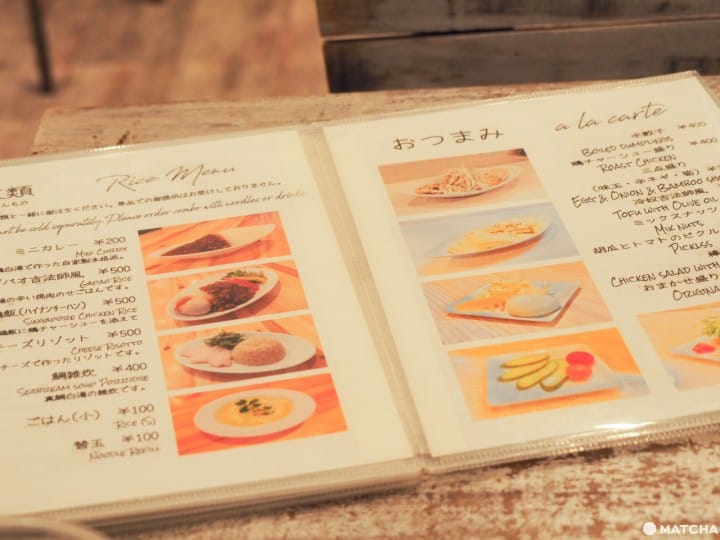 類
Rice Menu
んもの
類と一緒に御注文ください。単品での御提供はお受けしておりません。
not be sold separately. Please order combo with noodles or drinks.
ミニカレー ¥200
Mini Curry
白湯で作った自家製本格派。
パオ吉法師風 ¥500
Gapao Rice
の辛い焼肉のせごはんです。
飯(ハイナンチーハン) ¥500
Singapore Chicken Rice
鶏飯に鶏チャーシューを添えて
ーズリゾット ¥500
Cheese Risotto
チーズで作ったリゾットです。
鯛雑炊 ¥400
Seabream Soup Porridge
真鯛白湯の雑炊です。
ごはん(小) ¥100
Rice (S)
替玉 ¥100
Noodle Refill
おつまみ
a la carte
水餃子 ¥400
Boiled dumplings
鶏チャーシュー盛り ¥400
Roast Chicken
三点盛り
(味玉・辛ネギ・筍)
Egg & Onion & Bamboo sho
冷奴吉法師風
Tofu with Olive oil
ミックスナッツ
Mix nuts
胡瓜とトマトのピクル
Pickles
Chicken salad with
おまかせ盛り
Origina
MATCHA